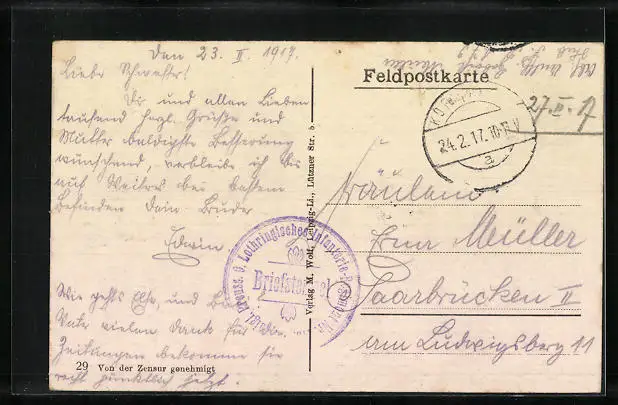 Den 23. II. 1917.
Liebe Schwester!
Dir und allen Lieben
tausend herzl. Grüße und
Mutter baldigste Besserung
wünschend, verbleibe ich bis
auf Weiteres bei bestem
Befinden Dein Bruder
Edwin
Wie gehts Ihr, und
Vater vielen Dank für
Zeitungen bekomme sie
recht pünktlich jetzt.
29 Von der Zensur genehmigt
Verlag M. Wolf, Leipzig-Li., Lützner Str. 5
Preuss. Lothringisches Infanterie-
Briefstempel
Feldpostkarte
27. II. 17
24.2.17.10-11 V
a
Fräulein
Erna Müller
Saarbrücken II
am Ludwigsberg 11